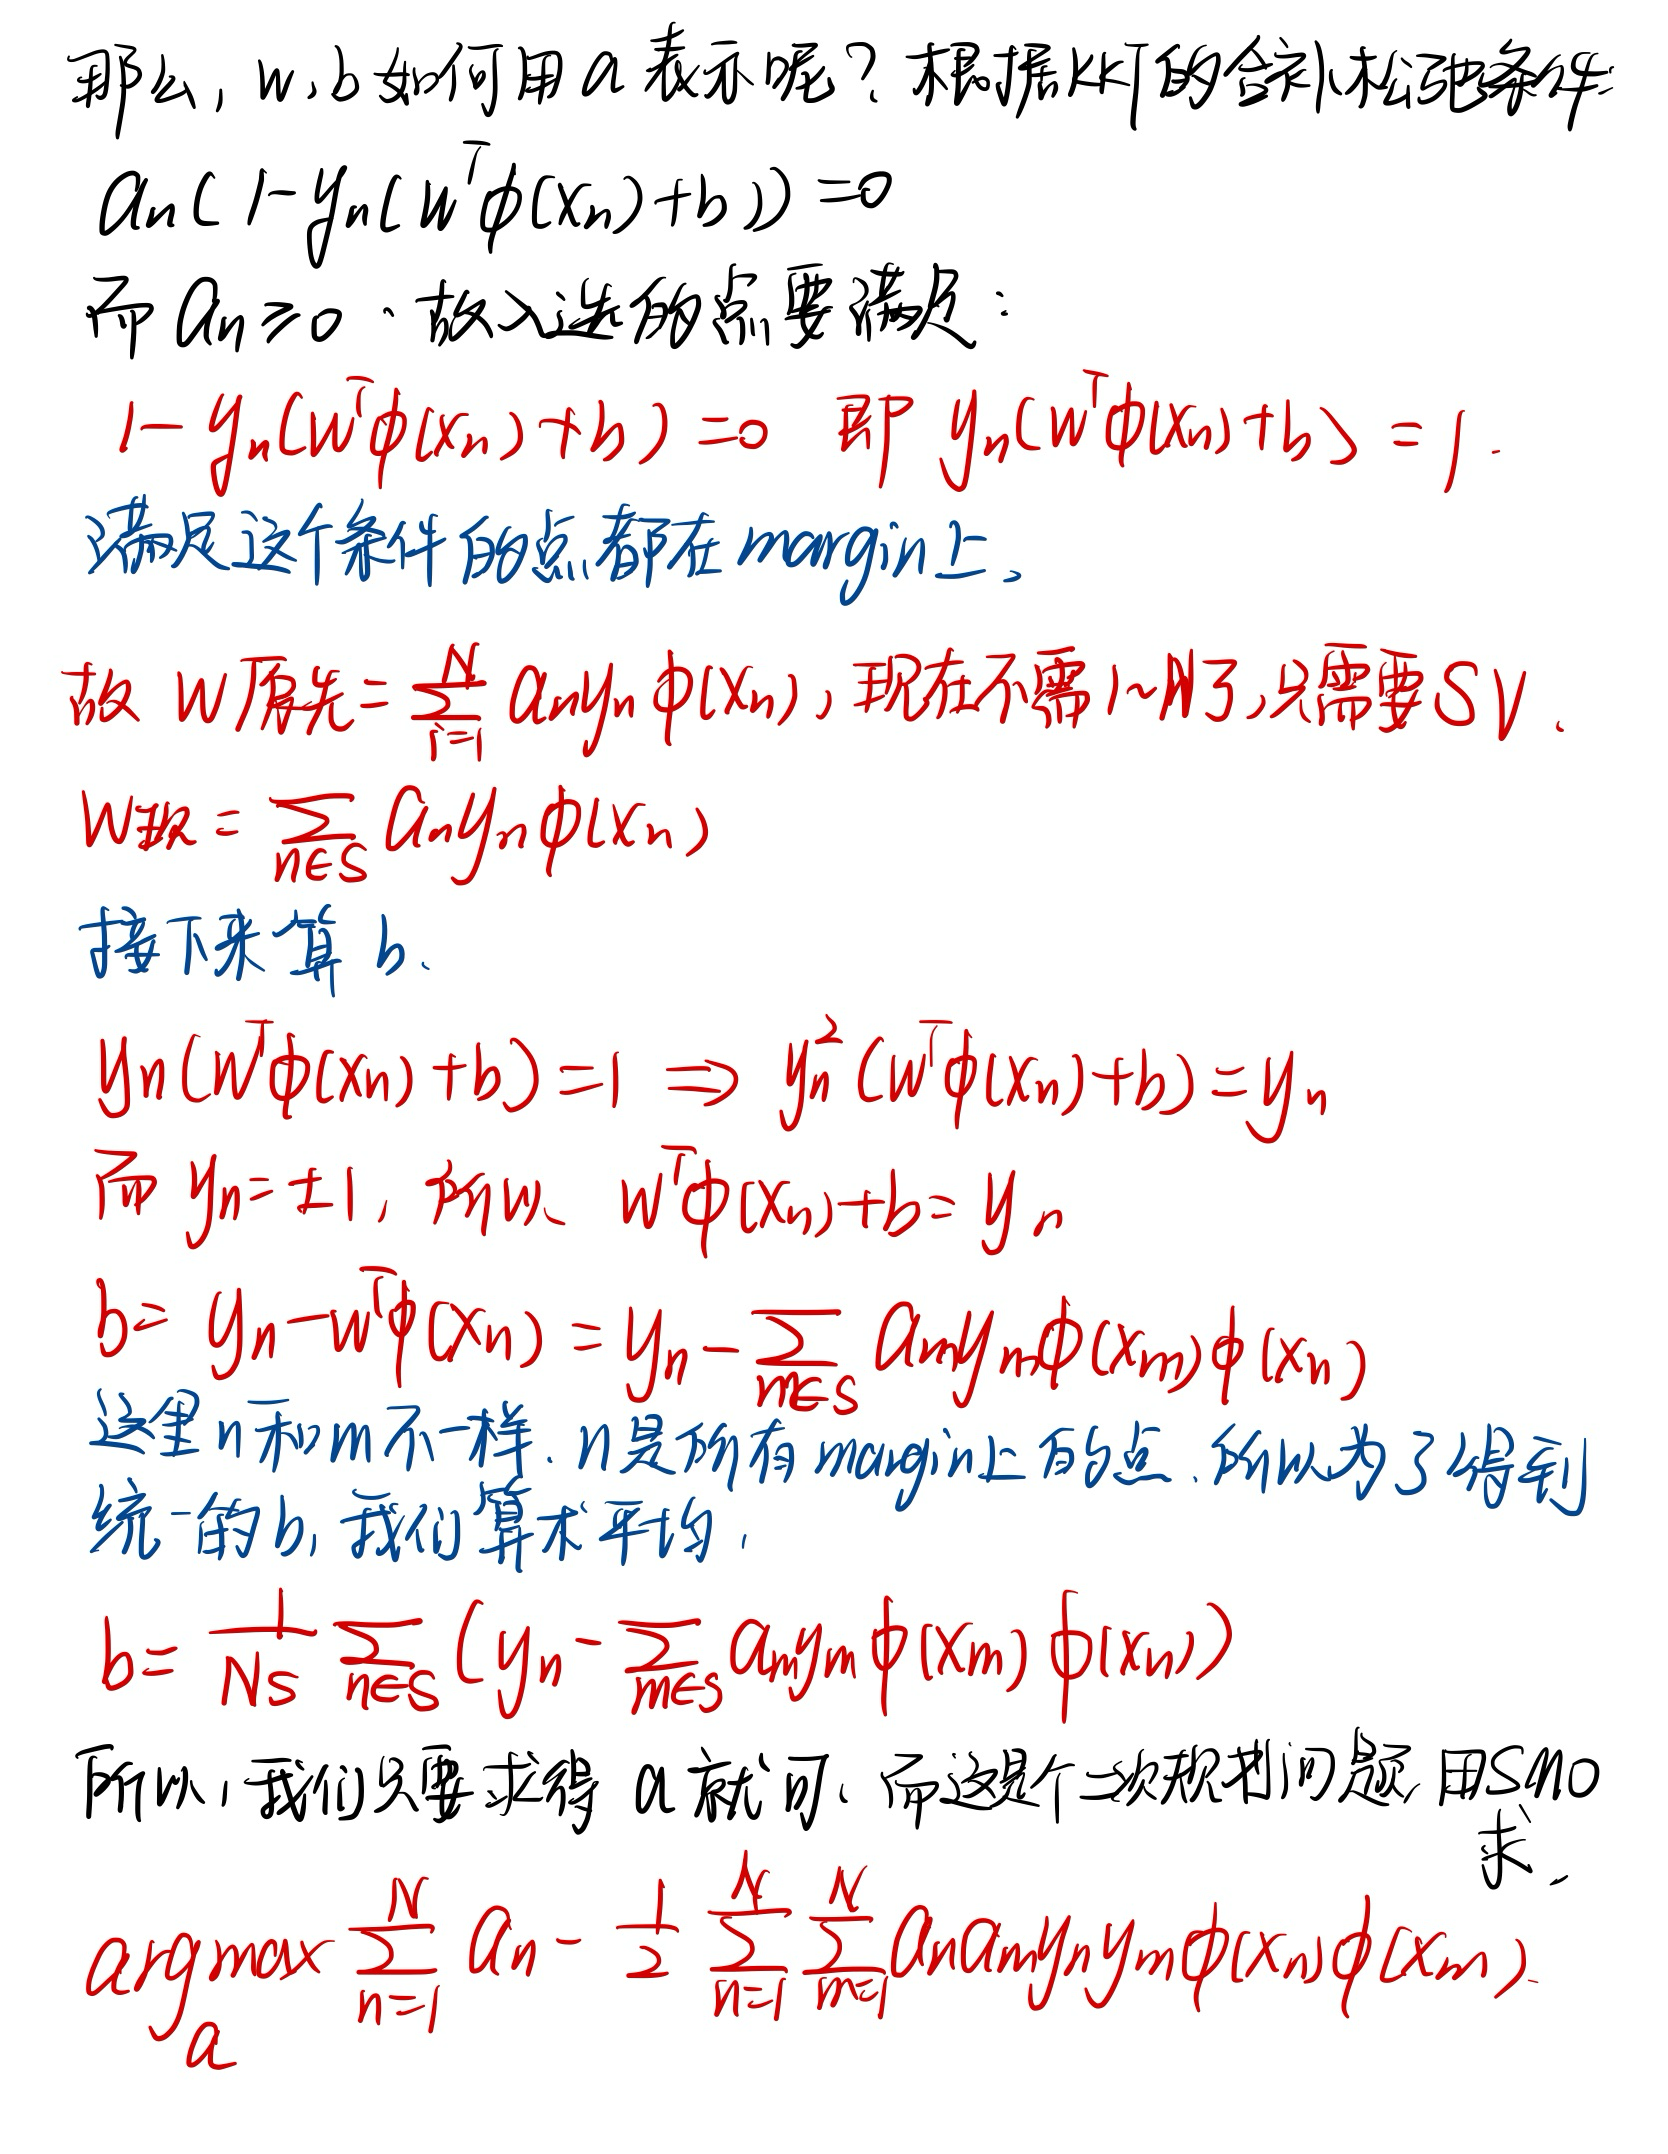 那么, w, b 如何用 a 表示呢? 根据KKT的合补松弛条件:
aₙ(1-yₙ(wᵀφ(xₙ)+b))=0
而 aₙ≥0. 故入选的点要满足:
1-yₙ(wᵀφ(xₙ)+b)=0 即 yₙ(wᵀφ(xₙ)+b)=1.
满足这个条件的点都在margin上。
故 w原先=∑_{i=1}^{N} aₙyₙφ(xₙ), 现在不需1~N了,只需要SV.
w现=∑_{n∈S} aₙyₙφ(xₙ)
接下来算 b.
yₙ(wᵀφ(xₙ)+b)=1 ⇒ yₙ²(wᵀφ(xₙ)+b)=yₙ
而 yₙ=±1, 所以 wᵀφ(xₙ)+b=yₙ
b=yₙ-wᵀφ(xₙ)=yₙ-∑_{m∈S} aₘyₘφ(xₘ)φ(xₙ)
这里n和m不一样. n是所有margin上的点. 所以为了得到
统一的b, 我们算术平均.
b=\frac{1}{N_S}∑_{n∈S}(yₙ-∑_{m∈S} aₘyₘφ(xₘ)φ(xₙ))
所以, 我们只要求得 a 就可. 而这是个二次规划问题, 用SMO
求.
argmax_{a} ∑_{n=1}^{N} aₙ - \frac{1}{2}∑_{n=1}^{N}∑_{m=1}^{N} aₙaₘyₙyₘφ(xₙ)φ(xₘ).